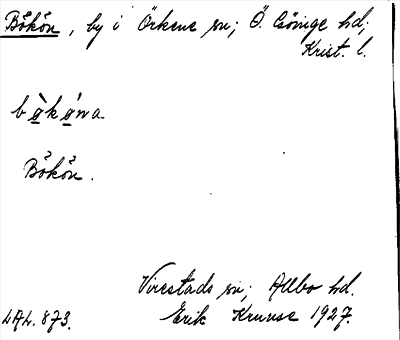 Bökön, by i Örkene sn; Ö. Göinge hd;
Krist. l.
bø̀kǿna
Bökön.
Virestads sn; Allbo hd.
LAL. 873. Erik Kruuse 1927.